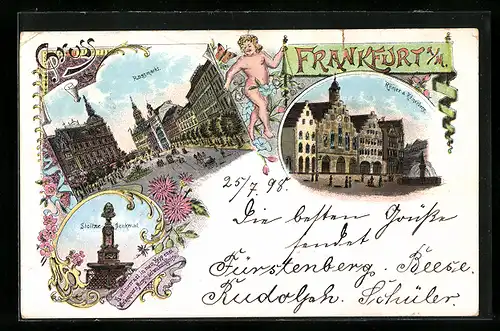 GRUSS
Rossmarkt.
FRANKFURT a/M.
Römer &
Stoltze Denkmal
25/7. 98.
Die besten Grüße
sendet
Fürstenberg. Beese.
Rudolph. Schüler.